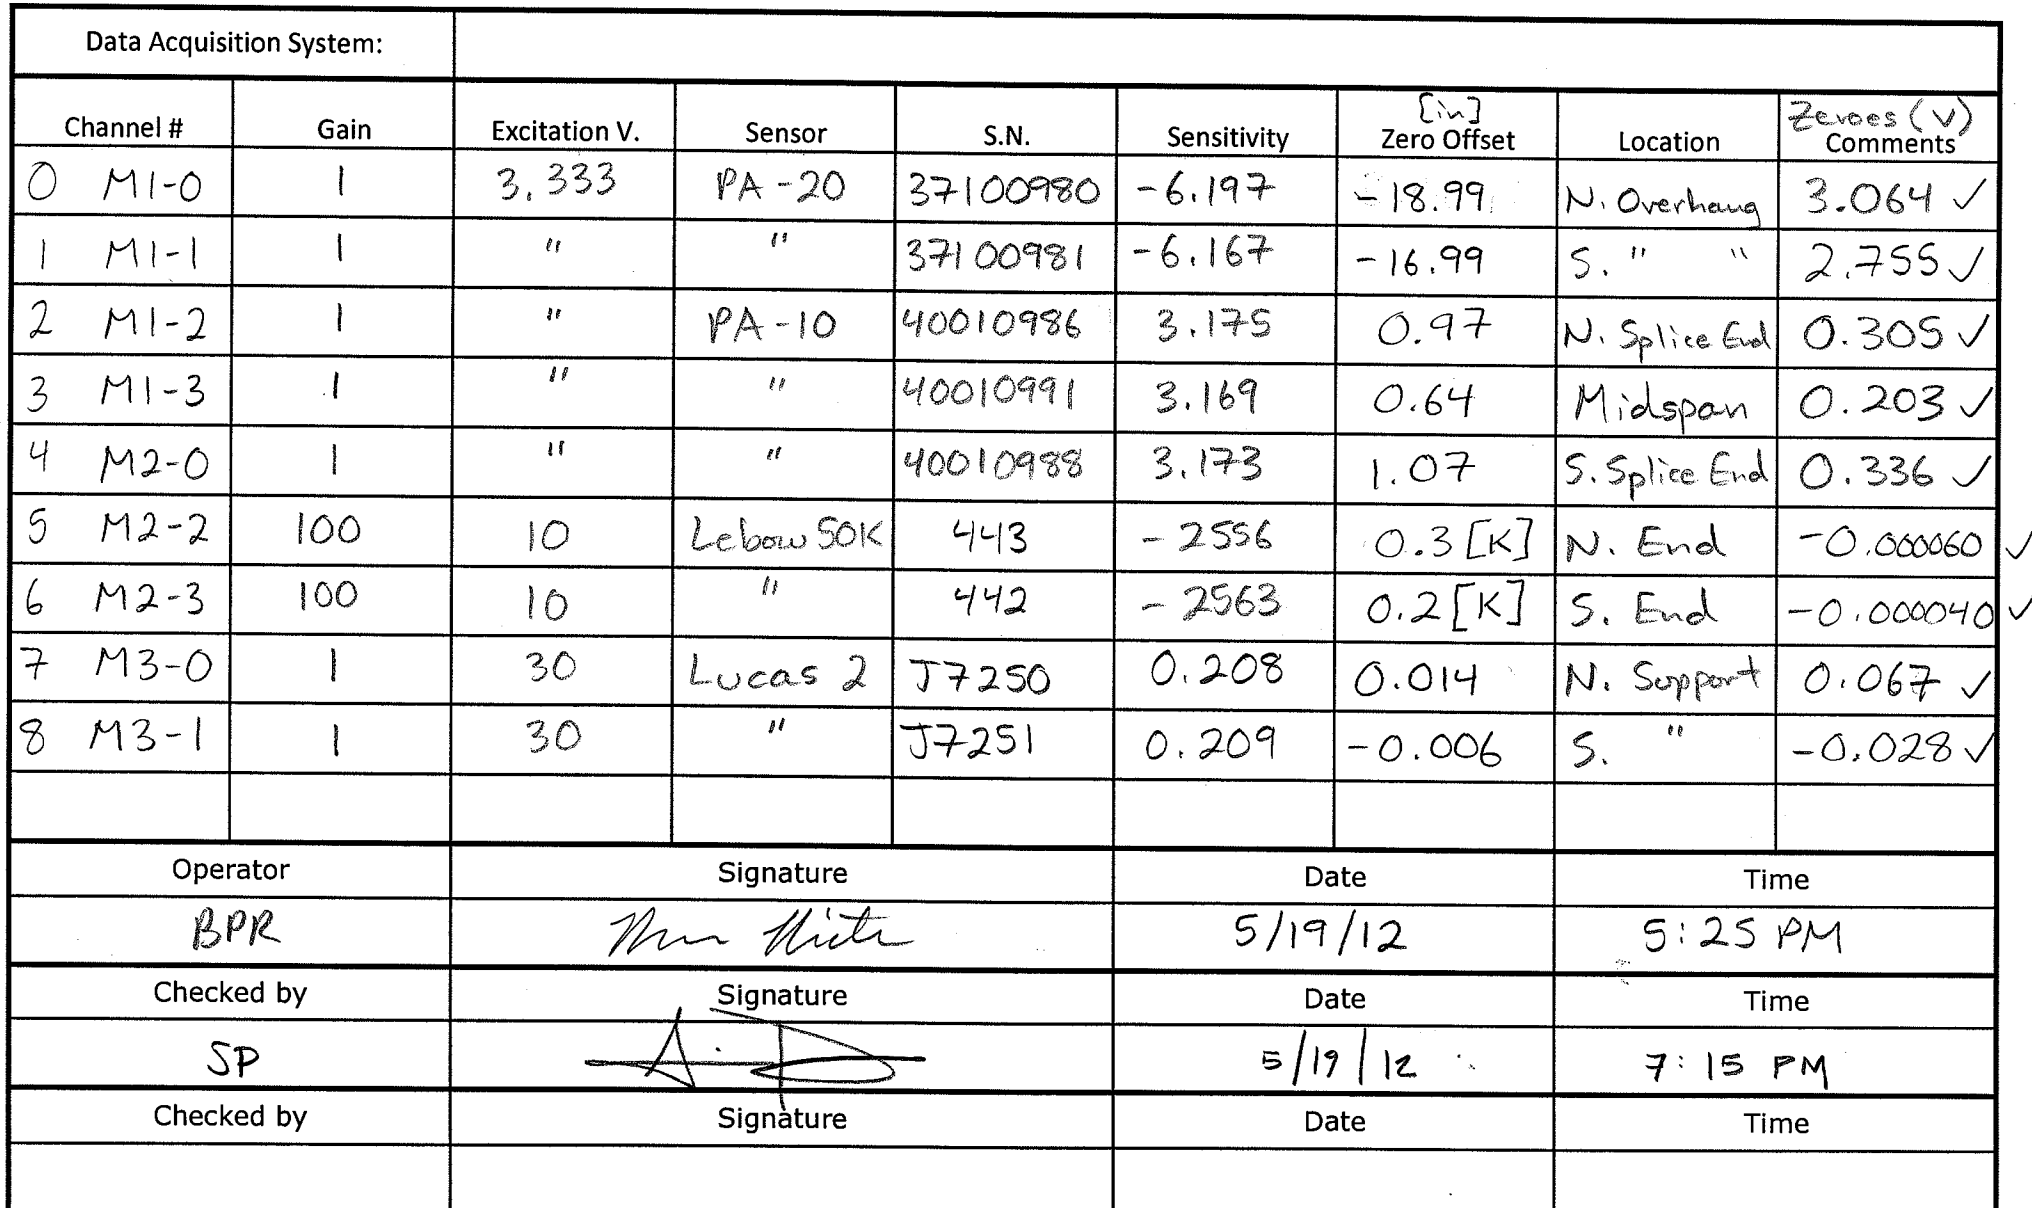 Data Acquisition System:
Channel # Gain Excitation V. Sensor S.N. Sensitivity [in] Zero Offset Location Zeroes (V) Comments
0 M1-0 1 3.333 PA-20 37100980 -6.197 -18.99 N. Overhang 3.064 ✓
1 M1-1 1 " " 37100981 -6.167 -16.99 S. " " 2.755 ✓
2 M1-2 1 " PA-10 40010986 3.175 0.97 N. Splice End 0.305 ✓
3 M1-3 1 " " 40010991 3.169 0.64 Midspan 0.203 ✓
4 M2-0 1 " " 40010988 3.173 1.07 S. Splice End 0.336 ✓
5 M2-2 100 10 Lebow 50K 443 -2556 0.3 [K] N. End -0.000060 ✓
6 M2-3 100 10 " 442 -2563 0.2 [K] S. End -0.000040 ✓
7 M3-0 1 30 Lucas 2 J7250 0.208 0.014 N. Support 0.067 ✓
8 M3-1 1 30 " J7251 0.209 -0.006 S. " -0.028 ✓
Operator Signature Date Time
BPR 5/19/12 5:25 PM
Checked by Signature Date Time
SP 5/19/12 7:15 PM
Checked by Signature Date Time